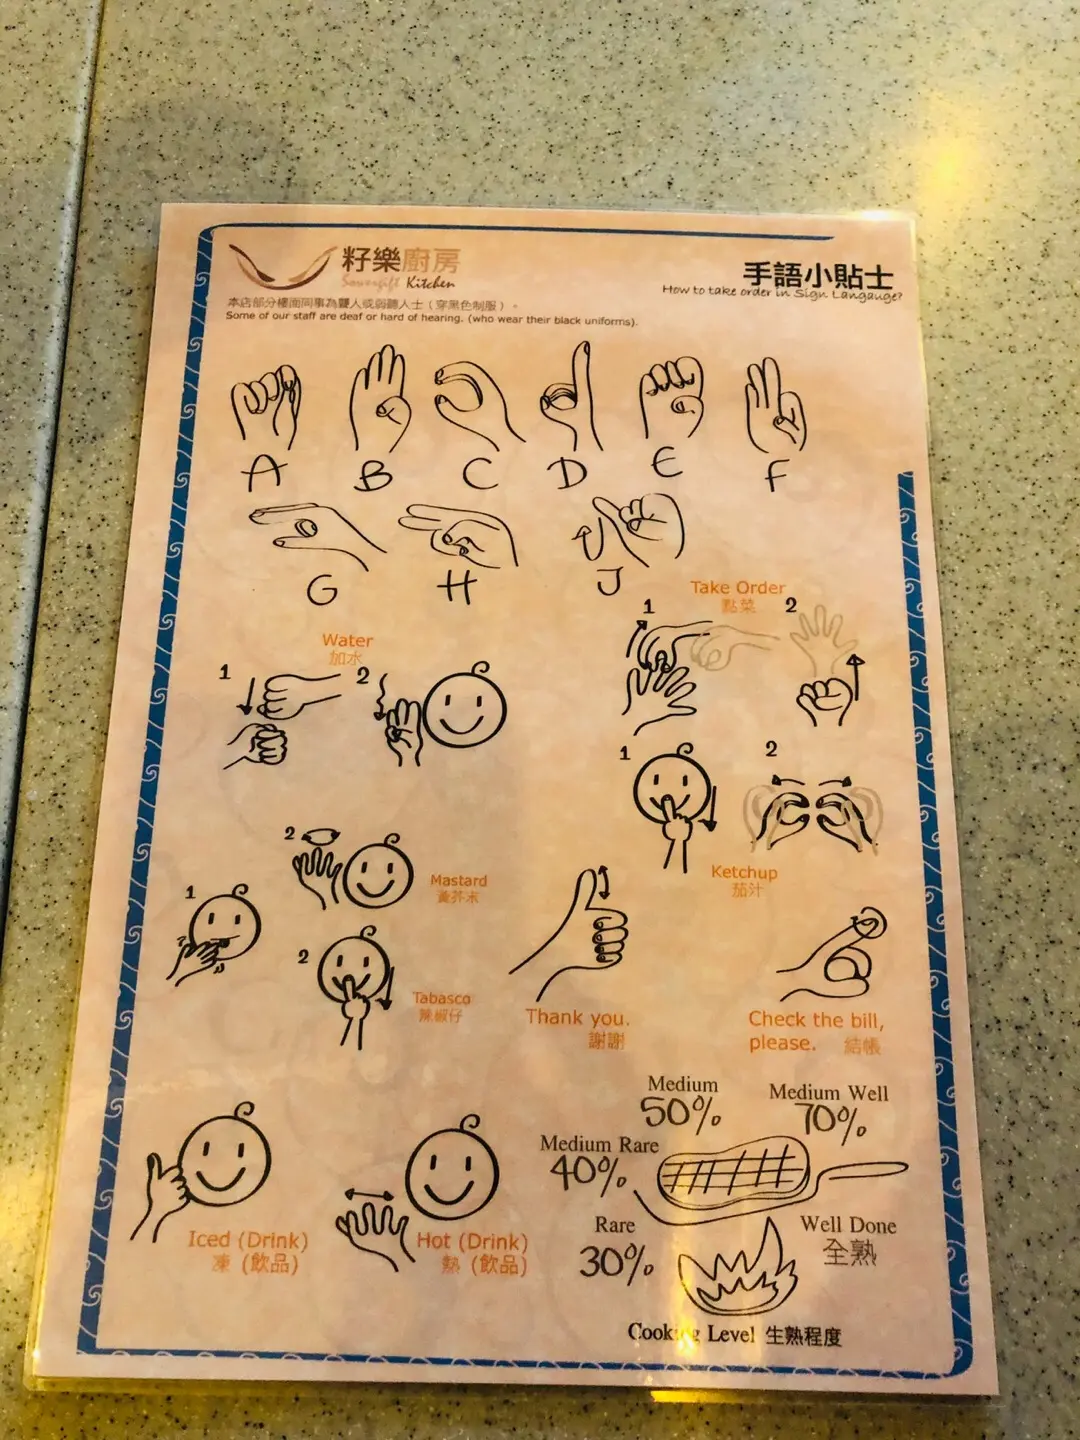 籽樂廚房
Sowergift Kitchen
手語小貼士
How to take order in Sign Langauge?
本店部分樓面同事為聾人或弱聽人士（穿黑色制服）。
Some of our staff are deaf or hard of hearing. (who wear their black uniforms).
A B C D E F
G H J
Take Order
點菜
1 2
Water
加水
1 2
1 2
Ketchup
茄汁
2
Mastard
黃芥末
1
2
Tabasco
辣椒仔
Thank you.
謝謝
Check the bill,
please. 結帳
Medium
50%
Medium Well
70%
Medium Rare
40%
Rare
30%
Well Done
全熟
Cooking Level 生熟程度
Iced (Drink)
凍 (飲品)
Hot (Drink)
熱 (飲品)